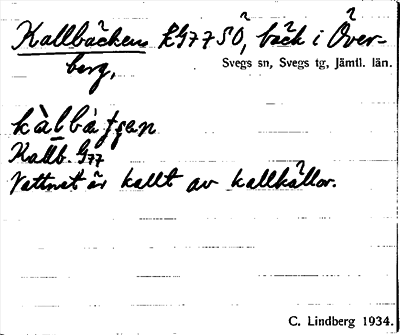 Kallbäcken EG77SÖ, bäck i Över-
berg,
Svegs sn, Svegs tg, Jämtl. län.
Kallb. G77
Vattnet är kallt av kallkällor.
C. Lindberg 1934.